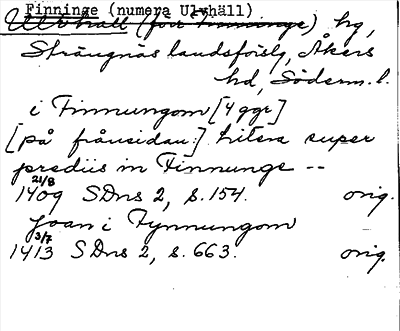 Finninge (numera Ulvhäll)
Ulvhäll (förr Finninge) hg,
Strängnäs landsförslg, Åkers
hd, Söderm. l.
i Finnungom [4 ggr]
[på frånsidan:] litera super
prediis in Finnunge --
21/8
1409 SDns 2, s. 154. orig.
Joan i Fynnungom
3/7
1413 SDns 2, s. 663. orig.